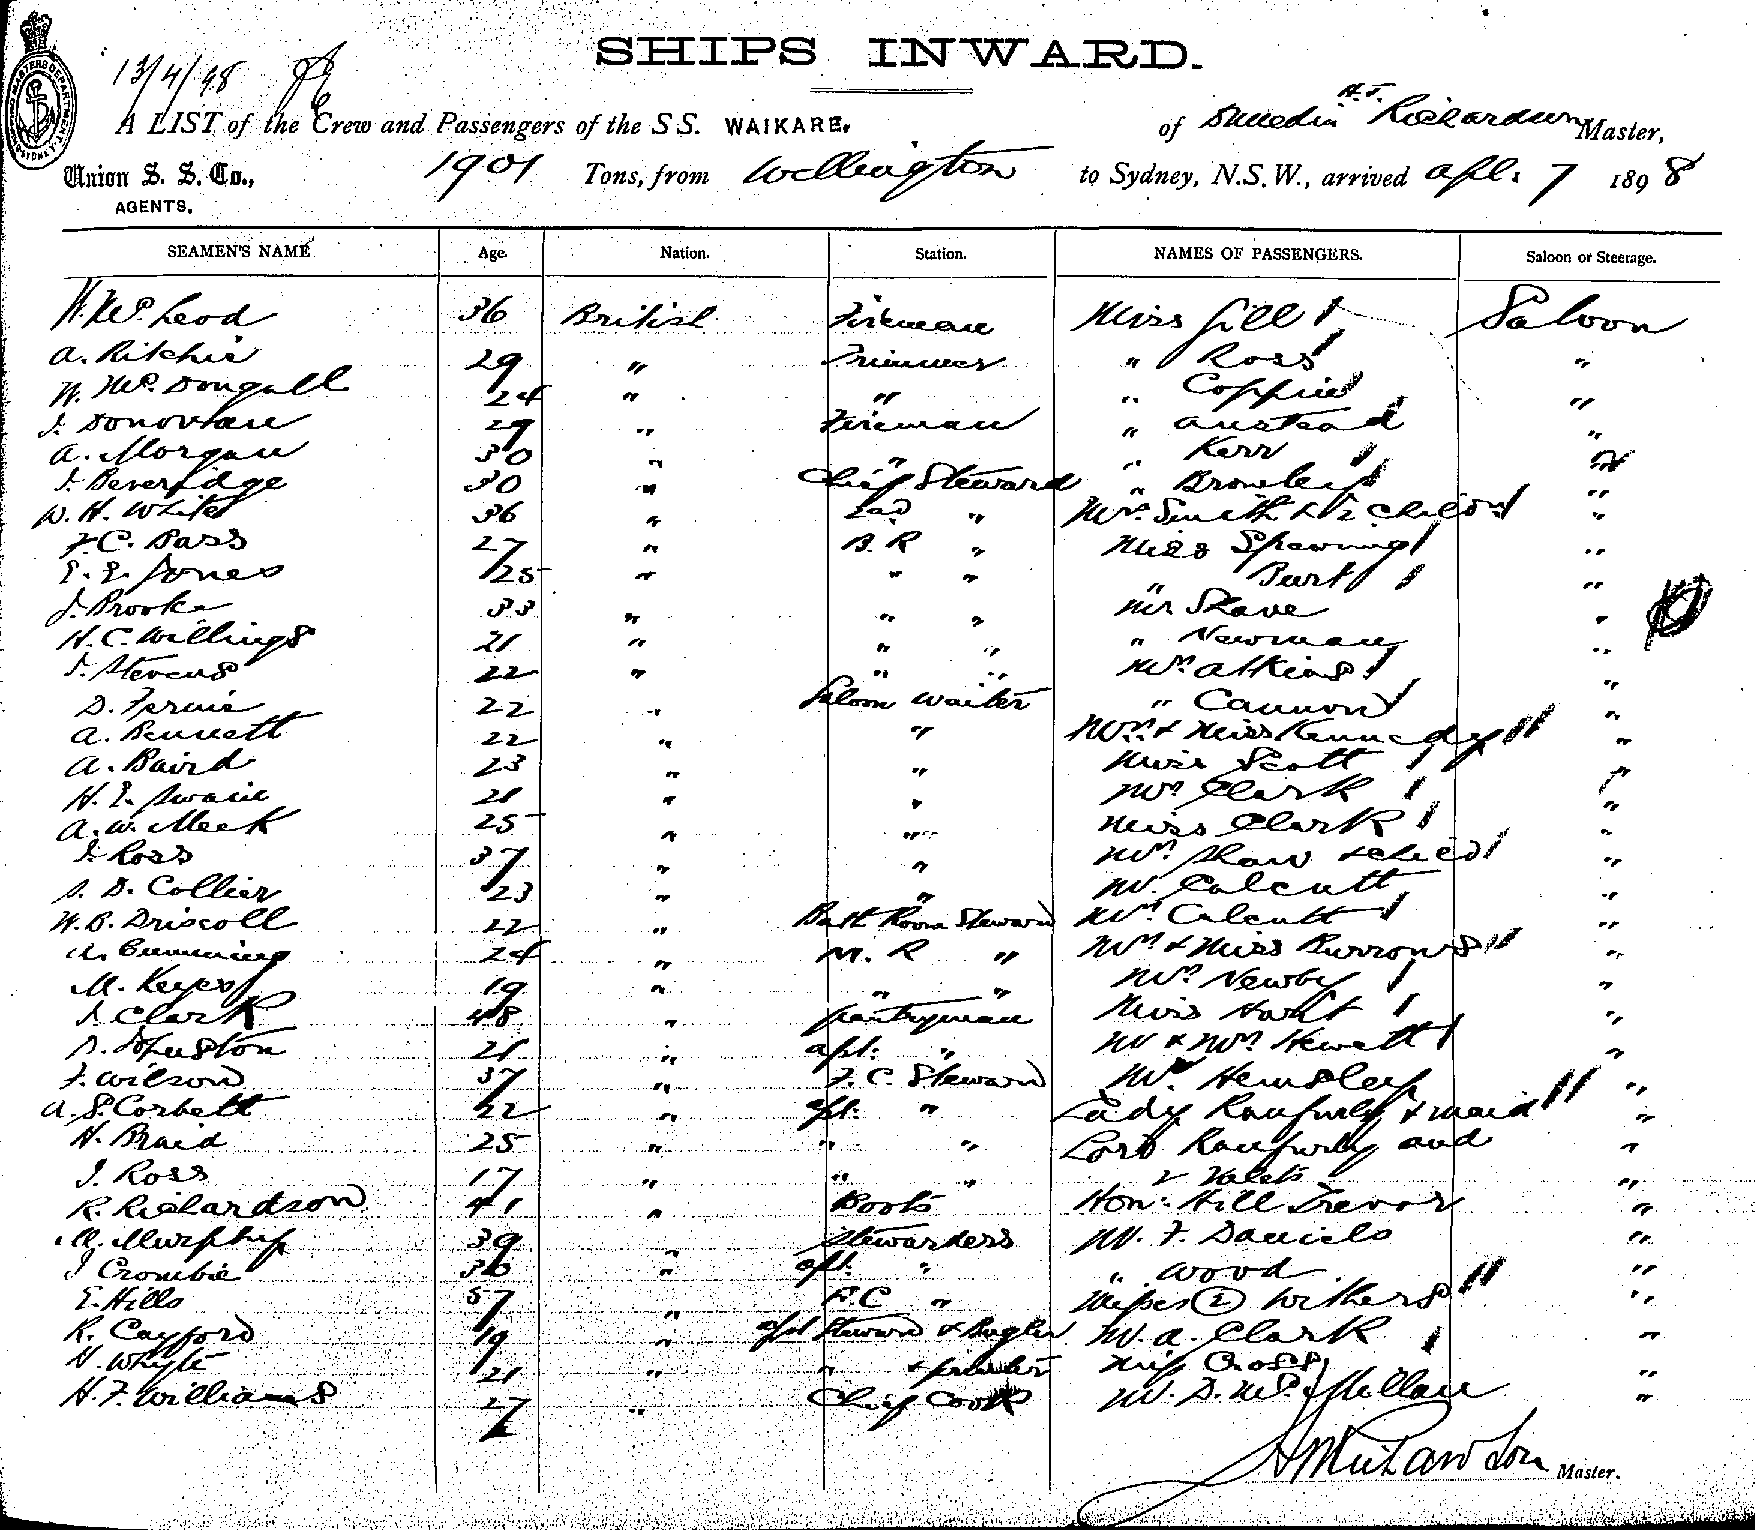 SHIPS INWARD.
13/4/98
A LIST of the Crew and Passengers of the S.S. WAIKARE, of Dunedin H. J. Richardson Master,
Union S. S. Co., AGENTS. 1901 Tons, from Wellington to Sydney, N.S.W., arrived Apl. 7 1898
SEAMEN'S NAME Age. Nation. Station. NAMES OF PASSENGERS. Saloon or Steerage.
W. McLeod 36 British Fireman Miss Gill Saloon
A. Ritchie 29 " Trimmer " Ross "
W. McDougall 24 " " " Coppin "
J. Donovan 29 " Fireman " Anstead "
A. Morgan 30 " " " Kerr "
J. Beveridge 30 " Chief Steward " Bromley "
W. H. White 36 " 2nd " Mrs Smith & 2 children "
F. C. Bass 27 " B. R " Miss Spawning "
E. E. Jones 25 " " " " Burt "
J. Brooke 33 " " " Mr Shave "
H. C. Willings 21 " " " " Newman "
J. Stevens 22 " " " Mrs Atkins "
D. Fernie 22 " Saloon Waiter " Cannon "
A. Bennett 22 " " Mrs & Miss Kennedy "
A. Baird 23 " " Miss Scott "
H. E. Swain 21 " " Mrs Clark "
A. W. Meek 25 " " Miss Clark "
J. Ross 37 " " Mrs Shaw & child "
S. D. Collier 23 " " Mr. Calcutt "
W. B. Driscoll 22 " Bath Room Steward Mrs Calcutt "
A. Cumming 24 " M. R " Mrs & Miss Burrows "
M. Keyes 19 " " " Mrs Newby "
J. Clark 48 " Pantryman Miss Hart "
D. Johnston 21 " Asst. " Mr & Mrs Hewett "
F. Wilson 37 " F. C. Steward Mr. Hemsley "
A. S. Corbett 22 " Asst. " Lady Ranfurly & maid "
H. Braid 25 " " " Lord Ranfurly and "
J. Ross 17 " " " 2 Valets "
R. Richardson 41 " Boots Hon: Hill Trevor "
M. Murphy 39 " Stewardess Mr. F. Daniels "
J Crombie 36 " Asst. " " Wood "
E. Hills 57 " F.C " Misses (2) Withers "
R. Cayford 19 " Asst Steward & Bugler Mr. A. Clark "
W. Whyte 21 " " & printer Miss Cross "
H. F. Williams 27 " Chief Cook Mr. D. McMillan "
Master.